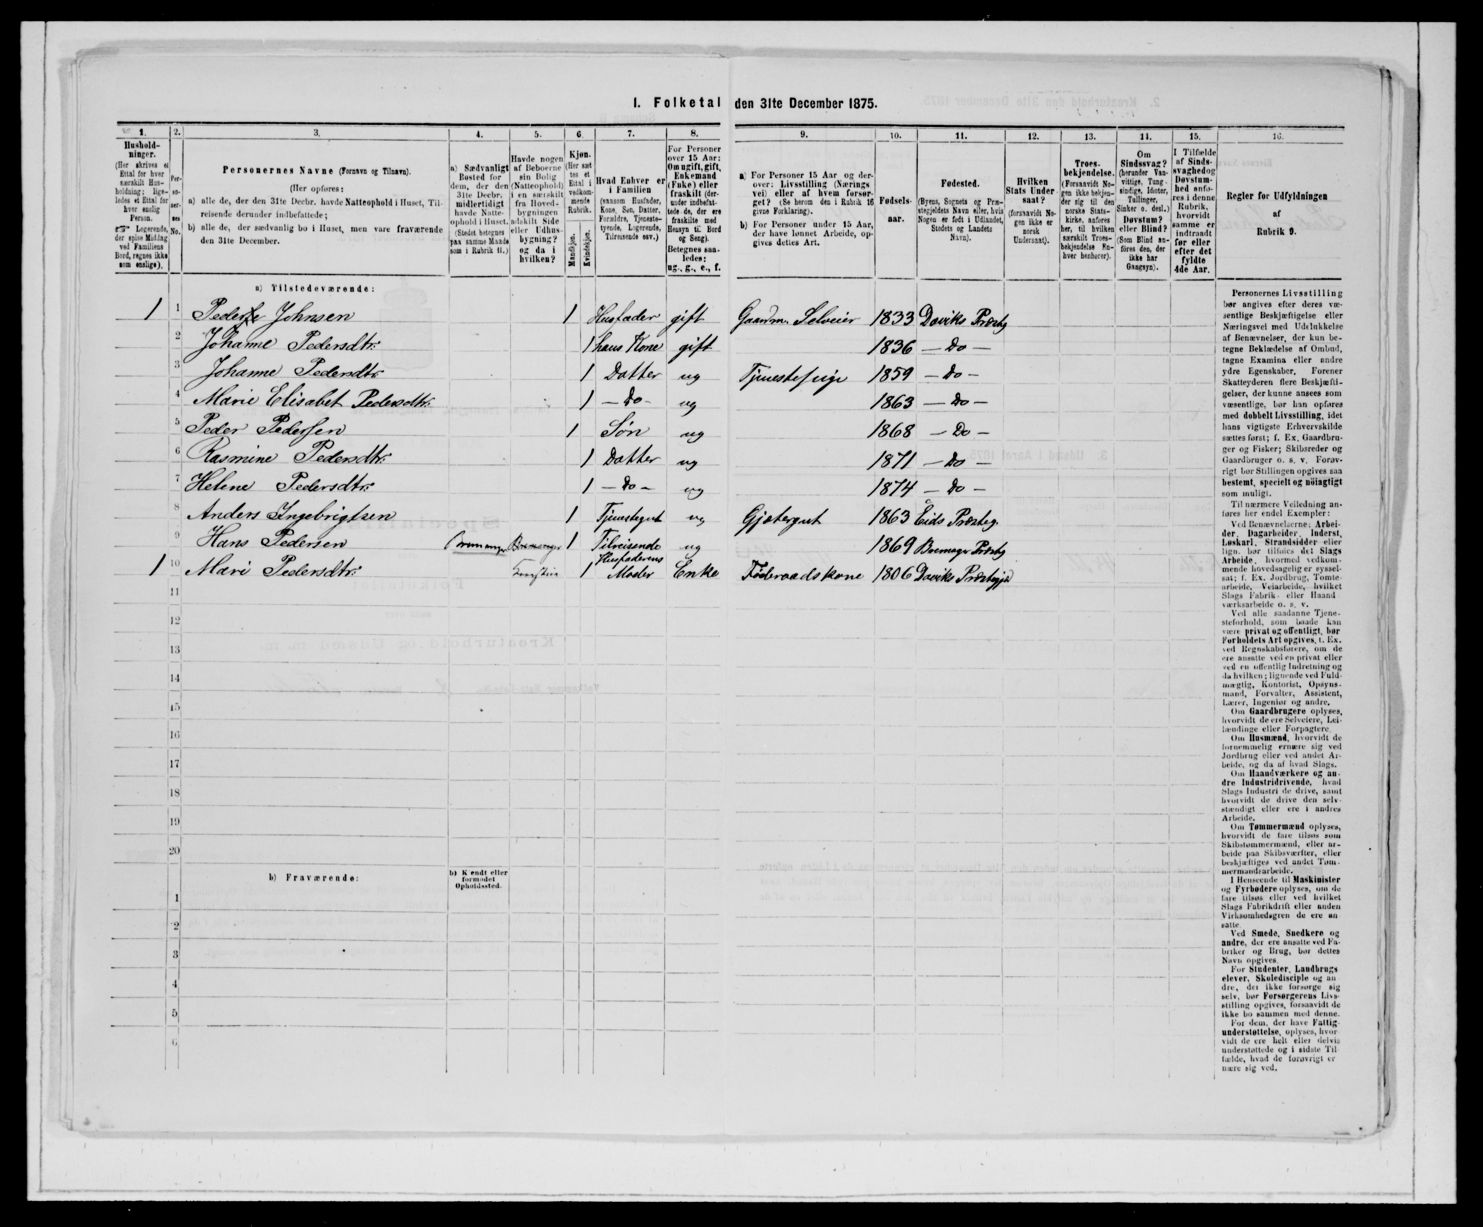 1. Folketal den 31te December 1875.
1.
Hushold-
ninger.
(Her skrives et
Ettal for hver
særskilt Hus-
holdning; lige-
ledes et Ettal for
hver enslig
Person.
Logerende,
der spise Middag
ved Familiens
Bord, regnes ikke
som enslige).
2.
Per-
so-
ner-
nes
No.
3.
Personernes Navne (Fornavn og Tilnavn).
(Her opføres:
a) alle de, der den 31te Decbr. havde Natteophold i Huset, Til-
reisende derunder indbefattede;
b) alle de, der sædvanlig bo i Huset, men vare fraværende
den 31te December.
4.
a) Sædvanligt
Bosted for
dem, der den
31te Decbr.
midlertidigt
havde Natte-
ophold i Huset.
(Stedet betegnes
paa samme Maade
som i Rubrik 11.)
5.
Havde nogen
af Beboerne
sin Bolig
(Natteophold)
i en særskilt
fra Hoved-
bygningen
adskilt Side
eller Udhus-
bygning?
og da i
hvilken?
6.
Kjøn.
(Her sæt
tes et
Ettal i
vedkom-
mende
Rubrik.
Mandkjøn.
Kvindekjøn.
7.
Hvad Enhver er
i Familien
(saasom Husfader,
Kone, Søn, Datter,
Forældre, Tjeneste-
tyende, Logerende,
Tilreisende osv.)
8.
For Personer
over 15 Aar:
Om ugift, gift,
Enkemand
(Enke) eller
fraskilt (der-
under indbefat-
tede de, der ere
fraskilte med
Hensyn til Bord
og Seng).
Betegnes saa-
ledes:
ug., g., e., f.
9.
a) For Personer 15 Aar og der-
over: Livsstilling (Nærings
vei) eller af hvem forsør-
get? (Se herom den i Rubrik 16
givne Forklaring).
b) For Personer under 15 Aar,
der have lønnet Arbeide, op-
gives dettes Art.
10.
Fødsels-
aar.
11.
Fødested.
(Byens, Sognets og Præ-
stegjeldets Navn eller, hvis
Nogen er født i Udlandet,
Stedets og Landets
Navn).
12.
Hvilken
Stats Under-
saat?
(forsaavidt No-
gen ikke er
norsk
Undersaat).
13.
Troes-
bekjendelse.
(Forsaavidt No-
gen ikke bekjen-
der sig til den
norske Stats-
kirke, anføres
her, til hvilken
særskilt Troes-
bekjendelse En-
hver henhører).
14.
Om
Sindssvag?
(herunder Van-
vittige, Tung-
sindige, Idioter,
Tullinger,
Sinker o. desl.)
Døvstum?
eller Blind?
(Som Blind an-
føres den, der
ikke har
Gangsyn).
15.
I Tilfælde
af Sinds-
svaghed og
Døvstum-
hed anfø-
res i denne
Rubrik,
hvorvidt
samme er
indtraadt
før eller
efter det
fyldte
4de Aar.
16.
Regler for Udfyldningen
af
Rubrik 9.
a) Tilstedeværende:
1 1 Peder Johnsen 1 Husfader gift Gaardm. Selveier 1833 Daviks Præstg
2 Johanne Pedersdtr. 1 hans Kone gift 1836 — Do —
3 Johanne Pedersdtr 1 Datter ug Tjenestepige 1859 — Do —
4 Marie Elisabet Pedersdtr. 1 — Do - ug 1863 — Do —
5 Peder Pedersen 1 Søn ug 1868 — Do —
6 Rasmine Pedersdtr. 1 Datter ug 1871 — Do —
7 Helene Pedersdtr. 1 — Do — ug 1874 — Do —
8 Anders Ingebrigtsen 1 Tjenestegut ug Gjætergut 1863 Eids Præsteg.
9 Hans Pedersen Bremanger Bremanger 1 Tilreisende ug 1869 Bremager Præstg
1 10 Mari Pedersdtr. 1 Husfaderens Moder Enke Føderaadskone 1806 Daviks Præstegjd
11
12
13
14
15
16
17
18
19
20
b) Fraværende:
b) Kjendt eller
formodet
Opholdssted.
1
2
3
4
5
6
Personernes Livsstilling
bør angives efter deres væ-
sentlige Beskjæftigelse eller
Næringsvei med Udelukkelse
af Benævnelser, der kun be-
tegne Beklædelse af Ombud,
tagne Examina eller andre
ydre Egenskaber. Forener
Skatteyderen flere Beskjæfti-
gelser, der kunne ansees som
væsentlige, bør han opføres
med dobbelt Livsstilling, idet
hans vigtigste Erhvervskilde
sættes først; f. Ex. Gaardbru-
ger og Fisker; Skibsreder og
Gaardbruger o. s. v. Forøv-
rigt bør Stillingen opgives saa
bestemt, specielt og nøiagtigt
som muligt.
Til nærmere Veiledning an-
føres her endel Exempler:
Ved Benævnelserne: Arbei-
der, Dagarbeider, Inderst,
Løskarl, Strandsidder eller
lign. bør tilføies det Slags
Arbeide, hvormed vedkom-
mende hovedsagelig er syssel-
sat; f. Ex. Jordbrug, Tomte-
arbeide, Veiarbeide, hvilket
Slags Fabrik- eller Haand-
værksarbeide o. s. v.
Ved alle saadanne Tjene-
steforhold, som baade kan
være privat og offentligt, bør
Forholdets Art opgives, f. Ex.
ved Regnskabsførere, om de
ere ansatte ved en privat eller
ved en offentlig Indretning og
da hvilken; lignende ved Fuld-
mægtig, Kontorist, Opsyns-
mand, Forvalter, Assistent,
Lærer, Ingeniør og andre.
Om Gaardbrugere oplyses,
hvorvidt de ere Selveiere, Lei-
lændinge eller Forpagtere.
Om Husmænd, hvorvidt de
fornemmelig ernære sig ved
Jordbrug eller ved andet Ar-
beide, og da af hvad Slags.
Om Haandværkere og an-
dre Industridrivende, hvad
Slags Industri de drive, samt
hvorvidt de drive den selv-
stændigt eller ere i andres
Arbeide.
Om Tømmermænd oplyses,
hvorvidt de fare tilsøs som
Skibstømmermænd, eller ar-
beide paa Skibsværfter, eller
beskjæftiges ved andet Tøm-
mermandsarbeide.
I Henseende til Maskinister
og Fyrbødere oplyses, om de
fare tilsøs eller ved hvilket
Slags Fabrikdrift eller anden
Virksomhedsgren de ere an-
satte.
Ved Smede, Snedkere og
andre, der ere ansatte ved Fa-
briker og Brug, bør dettes
Navn opgives.
For Studenter, Landbrugs
elever, Skoledisciple og an-
dre, der ikke forsørge sig
selv, bør Forsørgerens Livs-
stilling opgives, forsaavidt de
ikke bo sammen med denne.
For dem, der have Fattig-
understøttelse, oplyses, hvor-
vidt de ere helt eller delvis
understøttede og i sidste Til-
fælde, hvad de forøvrigt er-
nære sig ved.